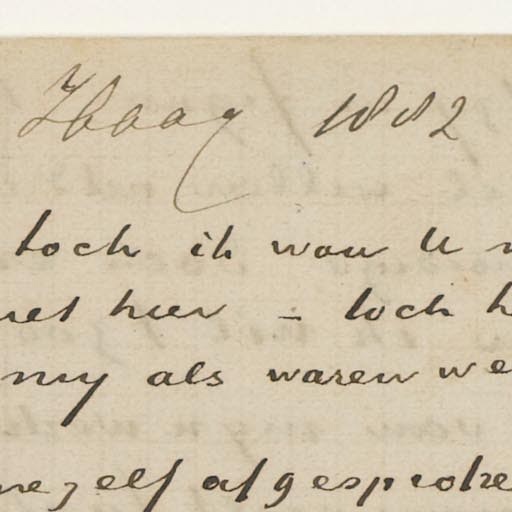 Haag 1882
toch ik van U
niet hier – toch h
my als waren we
mezelf afgesproke